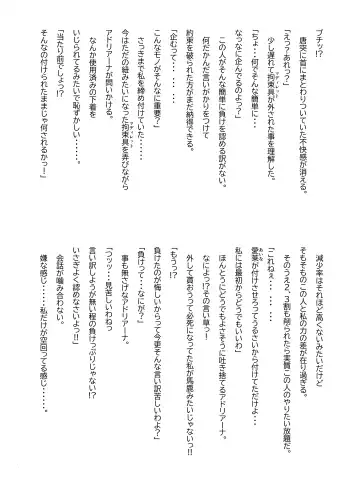 ブチッ!?
唐突に首にまとわりついていた不快感が消える。
「えっ？あれっ？」
少し遅れて拘束具が外された事を理解した。
「ちょ・・何でそんな簡単に・・・
なっなに企んでるのよっ!?」
この人がそんな簡単に負けを認める訳がない。
何だかんだ言いがかりをつけて
約束を破られた方がまだ納得できる。
「企むって・・・・・
こんなモノがそんなに重要？」
さっきまで私を締め付けていた・・・・・
今はただの紐みたいになった拘束具を弄びながら
アドリアーナが問いかける。
なんか使用済みの下着を
いじられてるみたいで恥ずかしい・・・・・。
「当たり前でしょっ!?
そんなの付けられたままじゃ何されるかっー！
減少率はそれほど高くないみたいだけど
そもそものこの人と私の力の差が在り過ぎる。
そのうえ２、３割も削られたら実質この人のやりたい放題だ。
「これねぇ・・・・・・
愛薬が付けさせろってうるさいから付けてただけよ・・・
私には最初からどうでもいいわ」
ほんとうにどうでもよさそうに吐き捨てるアドリアーナ。
なによっ!?その言い草っ！
外して貰おうって必死になってた私が馬鹿みたいじゃないっ!!
「もうっ!?
負けたのが悔しいからって今更そんな言い訳苦しいわよ？」
「負けって・・なにが？」
事も無さげなアドリアーナ。
「つッッ・・見苦しいわねっ
言い訳しようが無い程の負けっぷりじゃない!?
いさぎよく認めなさいよっ!!」
会話が噛み合わない。
嫌な感じ・・・・・私だけが空回ってる感じ・・・・・。